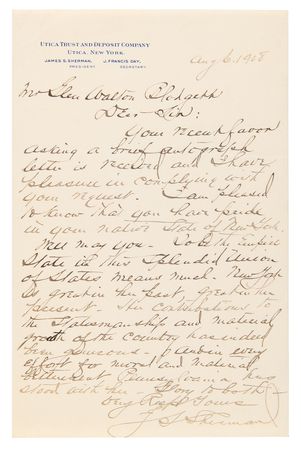 UTICA TRUST AND DEPOSIT COMPANY
UTICA, NEW YORK.
JAMES S. SHERMAN, J. FRANCIS DAY,
PRESIDENT SECRETARY.
Aug 6. 1908
Mr Glen Walton Blodgett
Dear Sir:
Your recent favor
asking a brief autograph
letter is received and I have
pleasure in complying with
your request. I am pleased
to know that you have pride
in your native State of New York.
Well may you - To be the Empire
State in this splendid union
of States means much. New York
is great in her past, great in her
present. Her contributions to
the Statesmanship and material
growth of the country has indeed
been generous - and in every
effort for moral and material
betterment Pennsylvania has
stood with her - Glory to both -
Very Resp Yours
J S Sherman